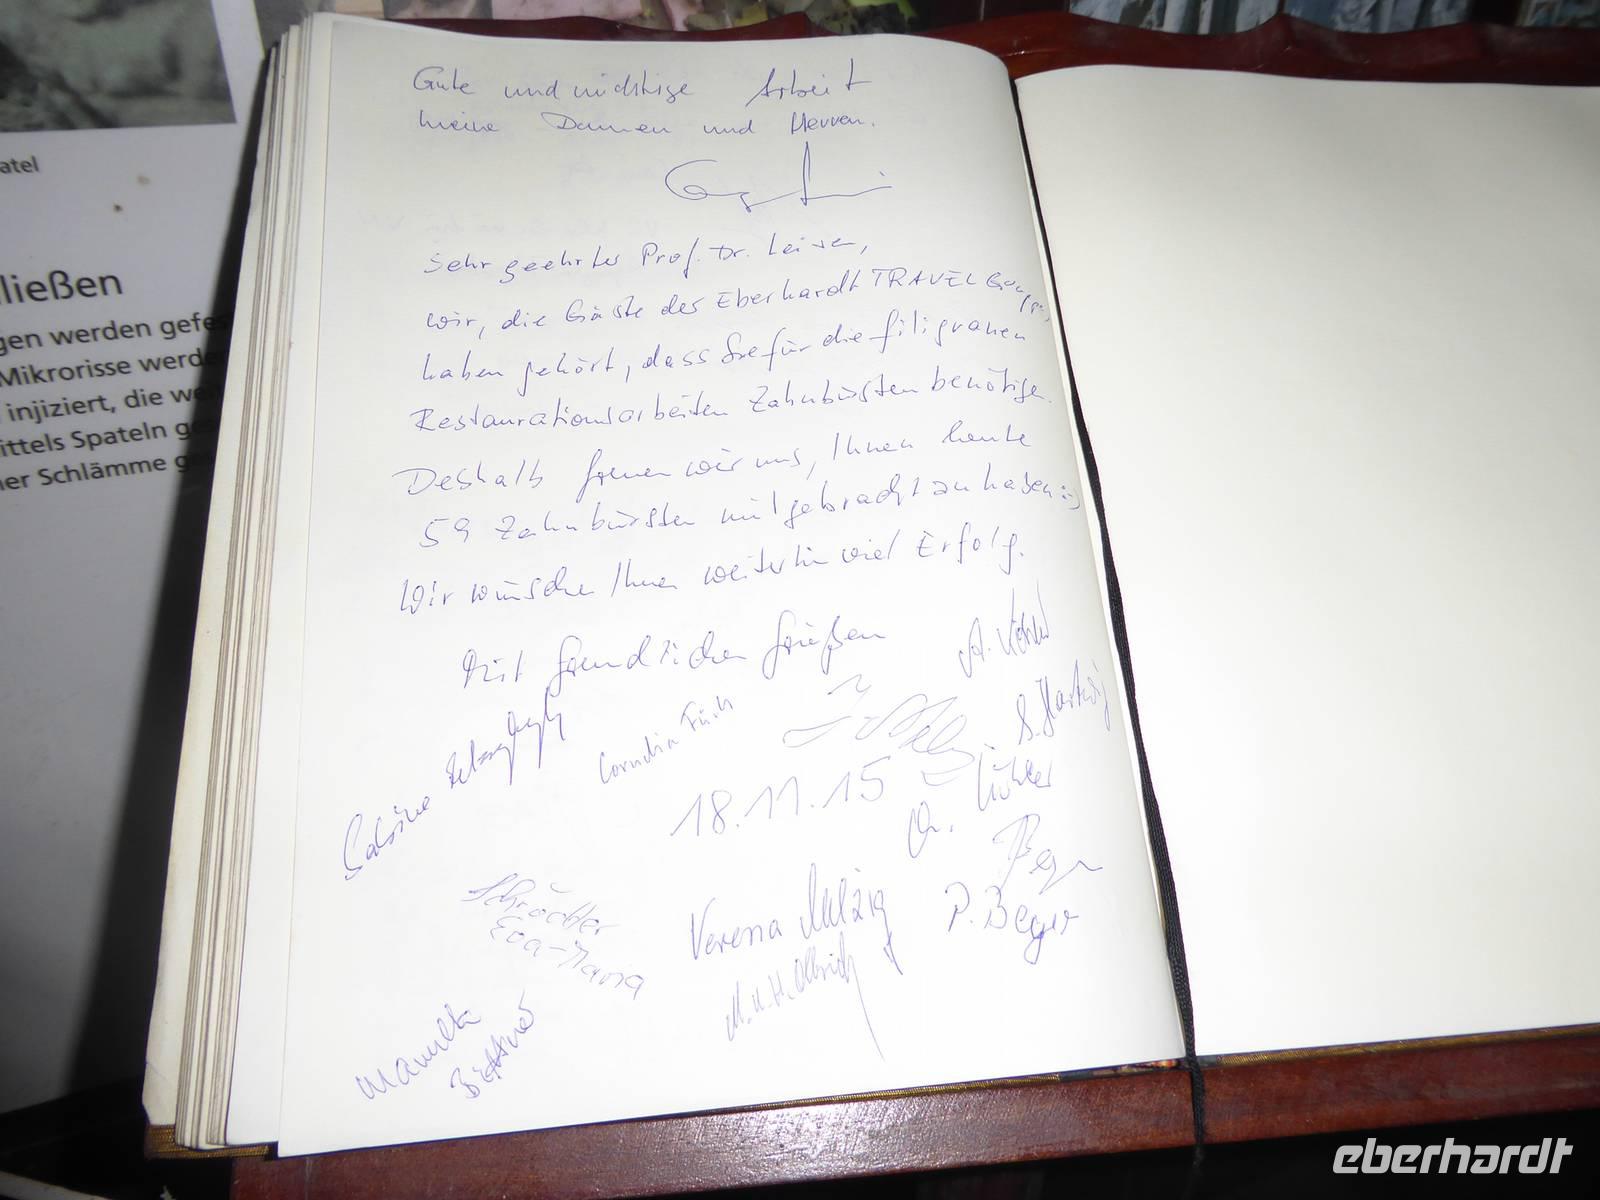 atel
ließen
gen werden gefes
Mikrorisse werde
injiziert, die we
ittels Spateln ge
er Schlämme ge
Gute und wichtige Arbeit
meine Damen und Herren.
Sehr geehrter Prof. Dr. Leisen,
wir, die Gäste der Eberhardt TRAVEL Gruppe,
haben gehört, dass Sie für die filigranen
Restaurationsarbeiten Zahnbürsten benötigen.
Deshalb freuen wir uns, Ihnen heute
59 Zahnbürsten mitgebracht zu haben :-)
Wir wünschen Ihnen weiterhin viel Erfolg.
Mit freundlichen Grüßen
A. Köhler
S. Hartwig
Cornelia
Sabine
18.11.15
Köhler
Beyer
P. Beyer
Schrödter
Eva-Maria
Verena Melzig
M. u. H. Olbrich
Manuela
Büttner
eberhardt